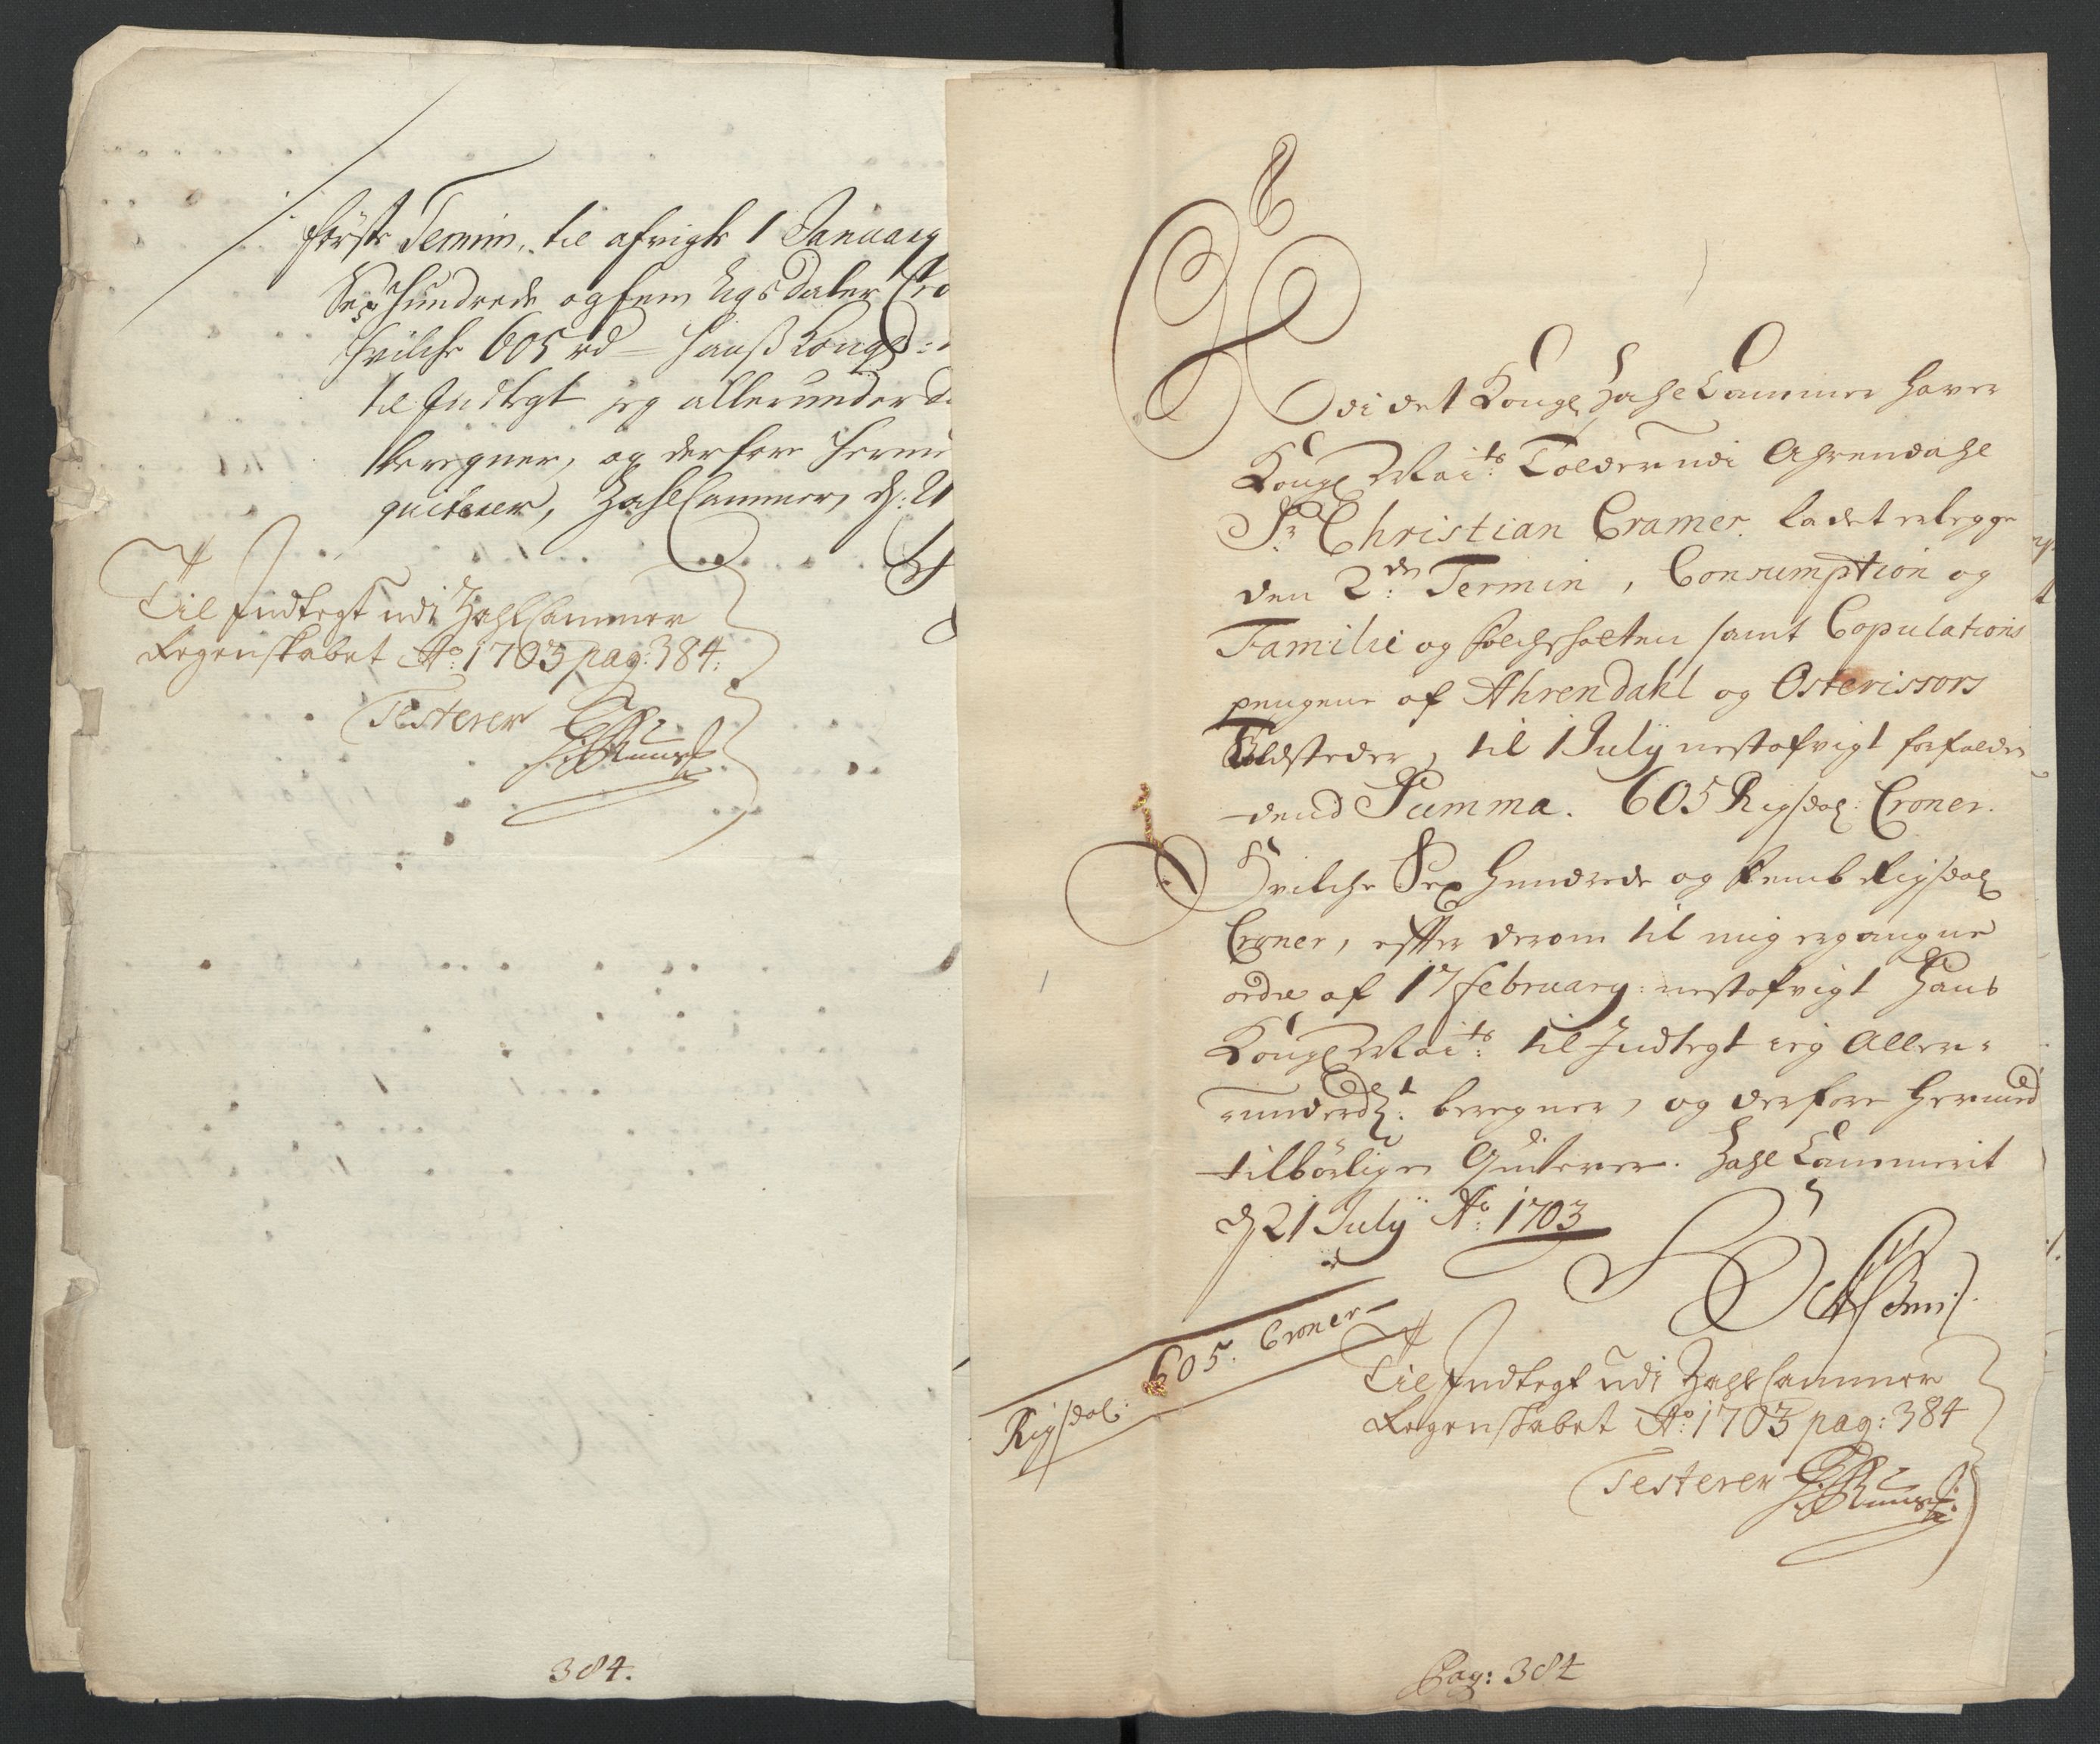 første Termin, til afvigte 1 January
Sex Hundrede og fem Rigsdaler Cro
hvilche 605 rd – Hanß Kongl:
til Indtegt jeg allerunderd
beregner, og derfore herme
qviterer, ZahlCammer, d: 21
Til Indtegt udi ZahlCammer
Regenskabet Ao: 1703 pag: 384.
Testerer
384.
Udi det Kongl Zahl Cammer haver
Kongl Maits: Tolder udi Ahrendahl
Sr: Christian Cramer. ladet erlegge
den 2de: Termin, Consumption og
Familie og folcheholten samt Copulations
pengene af Ahrendahl og Osterrissøers
Toldsteder, til 1 July nestafvigt forfalden
dend Summa. 605 Rigsdal: Croner.
Hvilche Sex Hundrede og Femb Rigsdal
Croner, effter derom til mig ergangne
ordre af 17 February: nestafvigt Hans
Kongl Maits: til Indtegt ieg Aller-
underd:t beregner, og derfore hermed
tilbørligen Qviterer. Zahl Cammerit
d 21 July Ao: 1703
Rigsdal: 605. Croner
Til Indtegt udi ZahlCammer
Regenskabet Ao: 1703 pag: 384
Testerer
Pag: 384